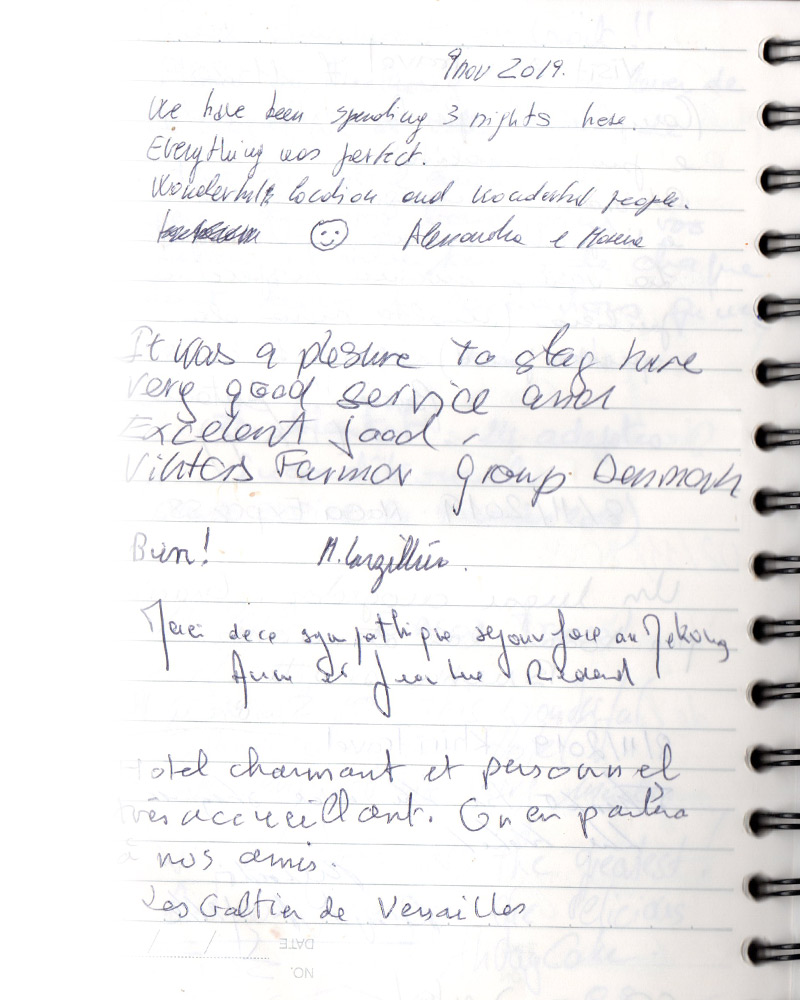 9 nov 2019.
We have been spending 3 nights here.
Everything was perfect.
Wonderful location and wonderful people.
Alessandra e
It was a plesure to stay here
very good service and
Excelent food
Farmor group Denmark
Bien!
Merci de ce sympathique séjour face au Mekong
Hotel charmant et personnel
très accueillant. On en parlera
à nos amis.
Les Galtier de Versailles
DATE / /
NO.